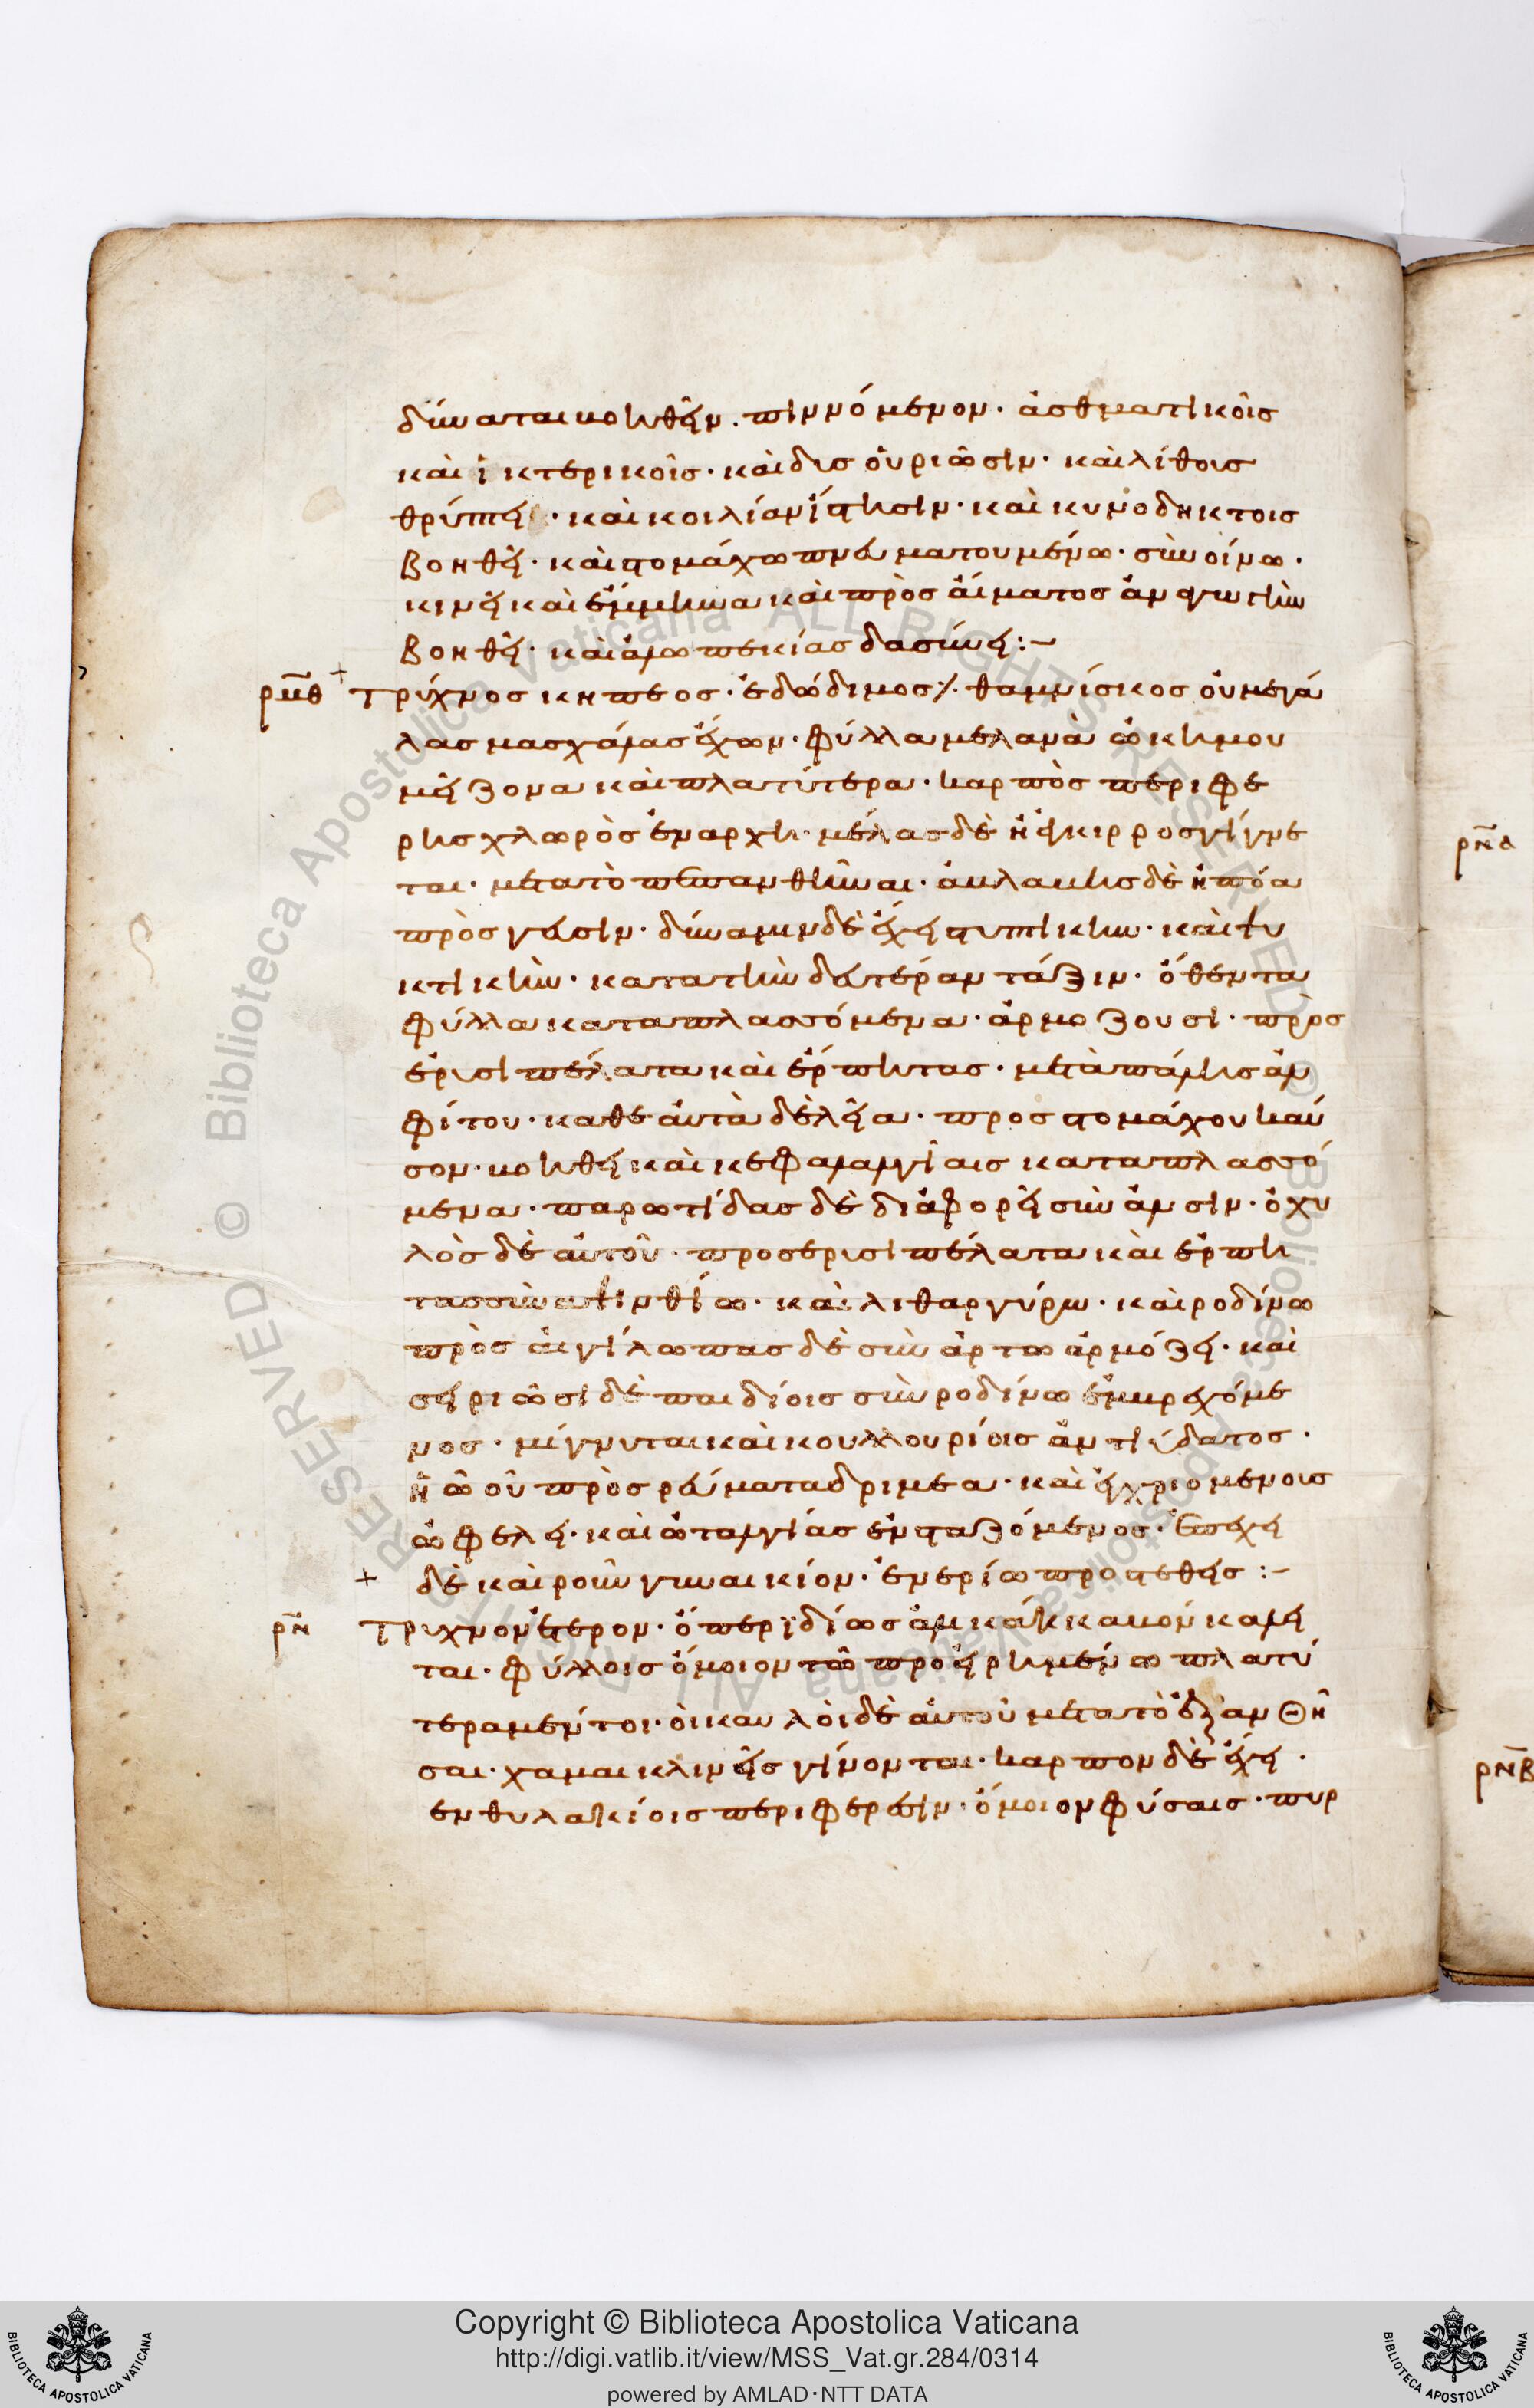 δύναται βοηθεῖν. πιννόμενον· ἀσθματικοῖς
καὶ ἰκτερικοῖς· καὶ δυσουριῶσιν· καὶ λίθους
θρύπτει· καὶ κοιλίαν ἵστησιν· καὶ κυνοδήκτοις
βοηθεῖ· καὶ στομάχω πνευματουμένω· σὺν οἴνω·
κινεῖ καὶ ἔμμηνα καὶ πρὸς αἵματος ἀναγωγὴν
βοηθεῖ· καὶ ἀλωπεκίας δασύνει:-
ρμθ + τρύχνος κηπεος· ἐδώδιμος⁒ θαμνίσκος οὐ μεγά
λας μασχάλας ἔχων· φύλλα μέλανα ὠκίμου
μείζονα καὶ πλατύτερα· καρπὸς περιφε
ρὴς χλωρὸς ἐν ἀρχῆ· μέλας δὲ ἢ κιρρος γίγνε
ται· μετὰ τὸ πεπανθῆναι· ἀβλαβὴς δὲ ἡ πόα
πρὸς γεῦσιν· δύναμιν δὲ ἔχει στυπτικὴν· καὶ ψυ
κτικὴν· κατα τὴν δευτέραν τάξιν· ὅθεν τα
φύλλα καταπλασσόμενα· ἁρμοζουσι· πρὸς
ἐρυσιπέλατα καὶ ἕρπητας· μετὰ πάλης ἀλ
φίτου· καθ ἑαυτὰ δὲ λεῖα· προς στομάχου καύ
σον· βοηθεῖ καὶ κεφαλαλγίαις καταπλασσό
μενα· παρωτίδας δὲ διαφορεῖ σὺν ἁλσίν· ὁ χυ
λὸς δὲ αὐτοῦ· προς ἐρυσιπέλατα καὶ ἕρπη
τας σὺν ψιμιθίω· καὶ λιθαργύρω· καὶ ροδίνω
πρὸς αἰγίλωπας δὲ σὺν ἄρτω ἁρμόζει· καὶ
σειριῶσι δὲ παιδίοις σὺν ροδίνω ἐμβρεχόμε
νος· μίγνυται καὶ κουλλουρίοις ἀντὶ ὕδατος·
ἢ ὠοῦ πρὸς ρεύματα δριμέα· καὶ ἐγχριομένοις
ὠφελεῖ· καὶ ὠταλγίας ἐνσταζόμενος· ἐπέχει
+ δὲ καὶ ροῦν γυναικίον· ἐν ἐρίω προστεθεὶς:-
ρν τρύχνον ἕτερον· ὅπερ ἰδίως ἁλικάκκαβον καλεῖ
ται· φύλλοις ὅμοιον τῶ προειρημένω πλατύ
τερα μέντοι· οἱ καυλοὶ δὲ αὐτοῦ μετα τὸ αὐξανθῆ
σαι· χαμαικλινεῖς γίνονται· καρπον δὲ ἔχει·
ἐν θυλακίοις περιφερέσιν· ὅμοιον φύσαις· πυρ
ρνα
ρνβ
Copyright © Biblioteca Apostolica Vaticana
http://digi.vatlib.it/view/MSS_Vat.gr.284/0314
powered by AMLAD·NTT DATA
BIBLIOTECA APOSTOLICA VATICANA
BIBLIOTECA APOSTOLICA VATICANA
© Biblioteca Apostolica Vaticana ALL RIGHTS RESERVED
© Biblioteca Apostolica Vaticana ALL RIGHTS RESERVED